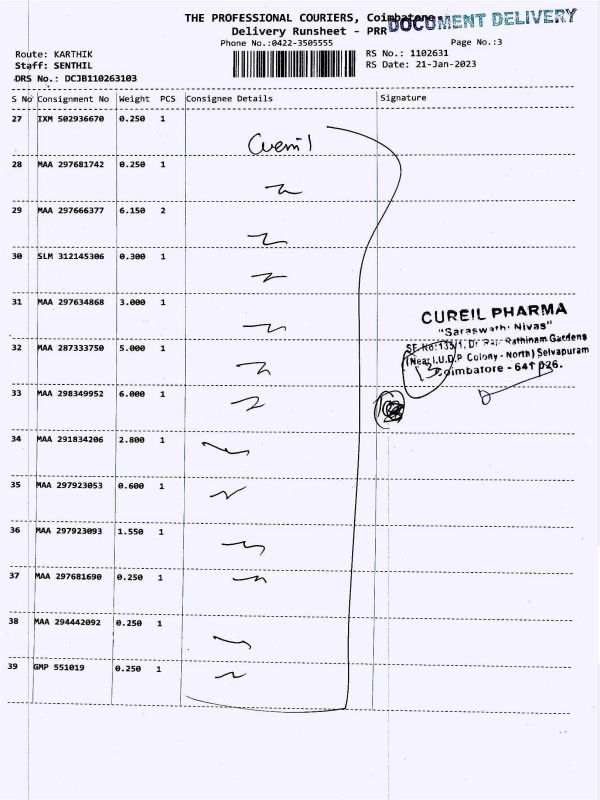 THE PROFESSIONAL COURIERS, Coimbatore-
DOCUMENT DELIVERY
Delivery Runsheet - PRR
Phone No.:0422-3505555
Page No.:3
Route: KARTHIK
RS No.: 1102631
Staff: SENTHIL
RS Date: 21-Jan-2023
DRS No.: DCJB110263103
S No Consignment No Weight PCS Consignee Details Signature
27 IXM 502936670 0.250 1
28 MAA 297681742 0.250 1
29 MAA 297666377 6.150 2
30 SLM 312145306 0.300 1
31 MAA 297634868 3.000 1
CUREIL PHARMA
"Saraswathi Nivas"
32 MAA 287333750 5.000 1
SF No:133/1, Rathinam Gardens
(Near I.U.D.P Colony - North) Selvapuram
Coimbatore - 641 026.
13
33 MAA 298349952 6.000 1
34 MAA 291834206 2.800 1
35 MAA 297923053 0.600 1
36 MAA 297923093 1.550 1
37 MAA 297681690 0.250 1
38 MAA 294442092 0.250 1
39 GMP 551019 0.250 1